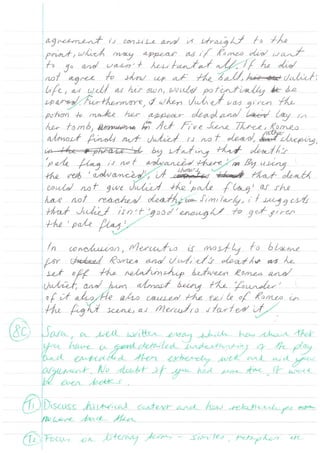 agreement is consise and is straight to the
point, which may appear as if Romeo did want
to go and wasn't hesitant at all. If he did
not agree to show up at the ball, Juliet's
life, as well as his own, would potentially be
spared. Furthermore, when Juliet was given the
potion to make her appear dead and lay in
her tomb, in Act Five Scene Three, Romeo
almost finds out Juliet is not dead, rather sleeping,
by stating that death's
'pale flag is not advanced there'. By using
the verb 'advanced', it shows that death
could not give Juliet the 'pale flag' as she
has not reached death. Similarly, it suggests
that Juliet isn't 'good' enough to get given
the 'pale flag'.
In conclusion, Mercutio is mostly to blame
for Romeo and Juliet's death as he
set off the relationship between Romeo and
Juliet, and him almost being the 'founder'
of it also. He also caused the exile of Romeo in
the fight scene, as Mercutio started it.
8C
a well written essay which has shown that
you have a good detailed understanding of the play
and extremely well and
argument. No doubt if you had more time, it would
be even better.
T1 Discuss historical context and how relationships
then
T2 Focus on literary terms - similes, metaphors etc